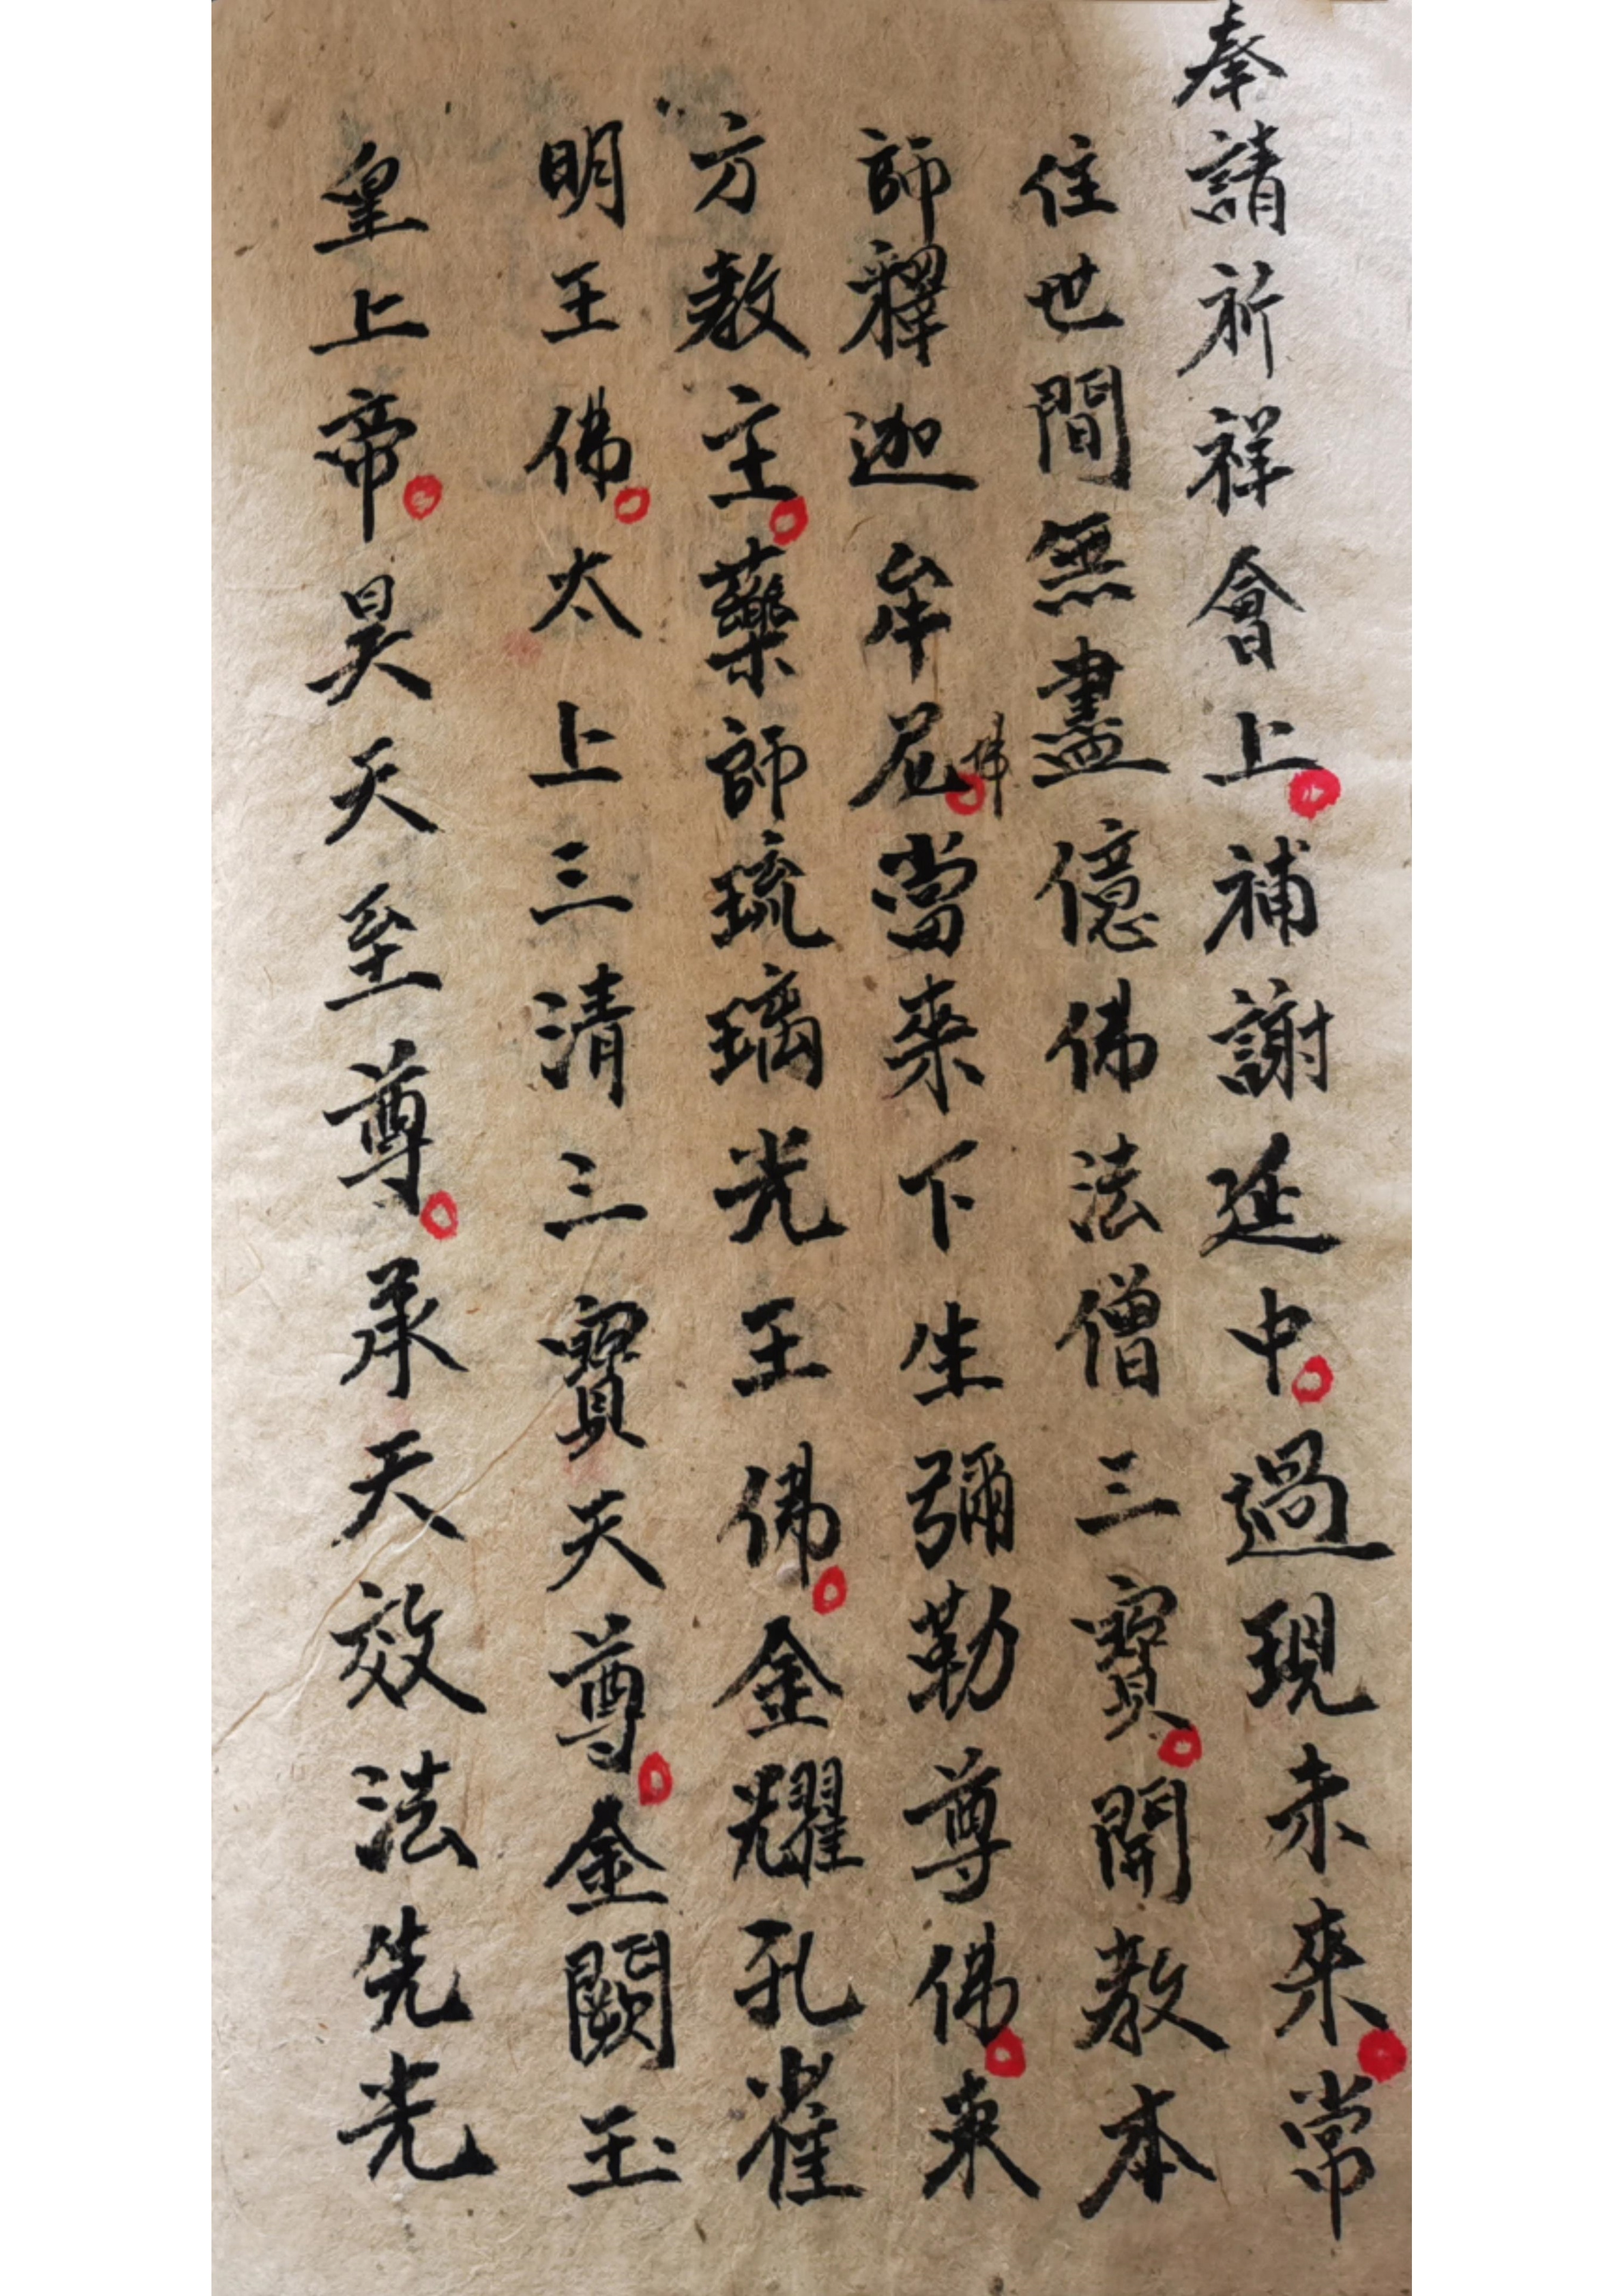 奉請祈祥會上。補謝延中。過現未來。常
住世間無盡億佛法僧三寳。開教本
師釋迦牟尼佛。當來下生彌勒尊佛。東
方教主。藥師琉璃光王佛。金耀孔雀
明王佛。太上三清三寳天尊。金闕玉
皇上帝。昊天至尊。承天效法先光